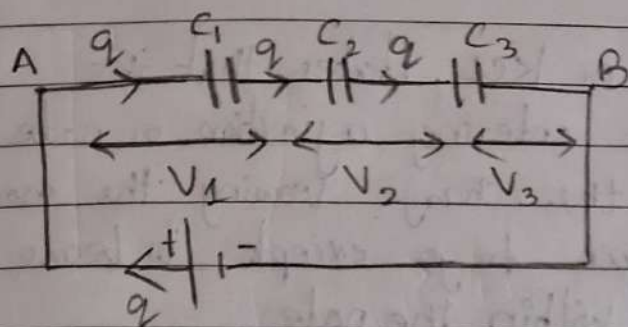 q C₁ q C₂ q C₃
A B
V₁ V₂ V₃
+ -
q